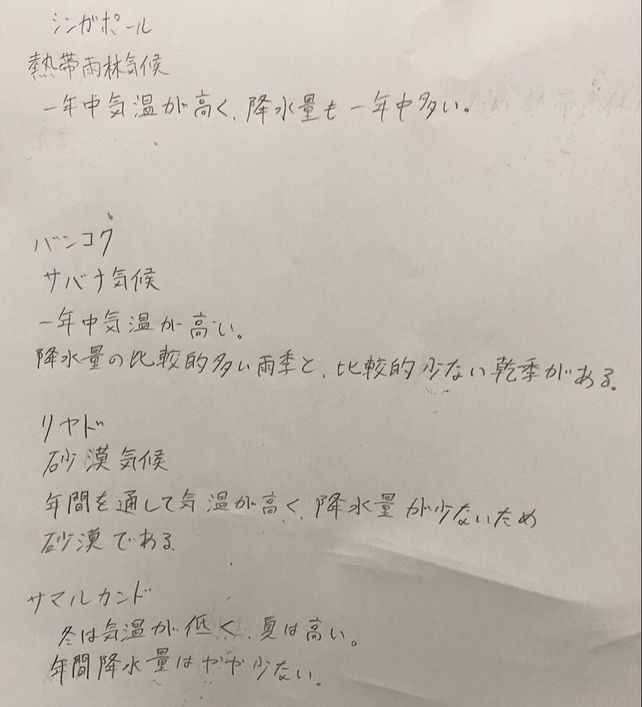 シンガポール
熱帯雨林気候
一年中気温が高く、降水量も一年中多い。
バンコク
サバナ気候
一年中気温が高い。
降水量の比較的多い雨季と、比較的少ない乾季がある。
リヤド
砂漠気候
年間を通して気温が高く、降水量が少ないため
砂漠である
サマルカンド
冬は気温が低く、夏は高い。
年間降水量はやや少ない。